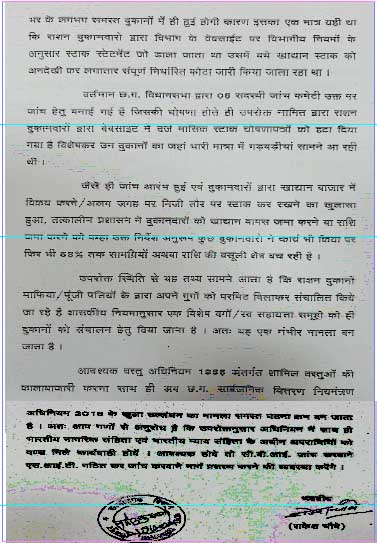 भर के लगभग समस्त दुकानों में ही हुई होगी कारण इसका एक मात्र यही था
कि राशन दुकानदारो द्वारा विभाग के वेबसाईट पर विभागीय नियमों के
अनुसार स्टाक स्टेटमेंट जो डाला जाता था उसमें बचे खाद्यान स्टाक को
अनदेखी कर लगातार संपूर्ण निर्धारित कोटा जारी किया जाता रहा था ।
वर्तमान छ.ग. विधानसभा द्वारा 05 सदस्यी जांच कमेटी उक्त पर
जांच हेतु बनाई गई है जिसकी घोषणा होते ही उपरोक्त नामित द्वारा राशन
दुकानदारों द्वारा वेबसाइट में दर्ज मासिक स्टाक घोषणापत्रों को हटा दिया
गया है विशेषकर उन दुकानों का जहां भारी मात्रा में गड़बड़ीयां सामने आ रही
थी ।
जैसे ही जांच आरंभ हुई एवं दुकानदारों द्वारा खाद्यान बाजार में
विक्रय करने/अलग जगह पर निजी तौर पर स्टाक कर रखने का खुलासा
हुआ, तत्कालीन प्रशासन ने दुकानदारों को खाद्यान वापस जमा करने या राशि
जमा करने को कहा उक्त निर्देश अनुरूप कुछ दुकानदारों ने कार्य भी किया पर
फिर भी 65% तक सामग्रियों अथवा राशि की वसूली शेष बच रही है ।
उपरोक्त स्थिति से यह तथ्य सामने आता है कि राशन दुकानें
माफिया/पूंजी पतियों के द्वारा अपने गुर्गो को परमिट दिलाकर संचालित किये
जा रहे है शासकीय नियमानुसार एक विशेष वर्गो/स्व सहायता समूहो को ही
दुकानों को संचालन हेतु दिया जाना है । अतः यह एक गंभीर मामला बन
जाता है ।
आवश्यक वस्तु अधिनियम 1955 अंतर्गत शामिल वस्तुओं की
कालाबाजारी करना साथ ही अब छ.ग. सार्वजनिक वितरण नियमंत्रण
अधिनियम 2016 के खुला उल्लंघन का मामला समस्त घटना क्रम बन जाता
है । अतः आप गणों से अनुरोध है कि उपरोक्तानुसार अधिनियम में साथ ही
भारतीय नागरिक संहिता एवं भारतीय न्याय संहिता के अधीन अपराधियों को
दण्ड मिले कार्यवाही होवें । आवश्यक होवे तो सी.बी.आई. जांच करवाने
एस.आई.टी. गठित कर जांच करवाने मार्ग प्रशस्त करने की व्यवस्था करेंगे ।
भवदीय
(राकेश चौबे)